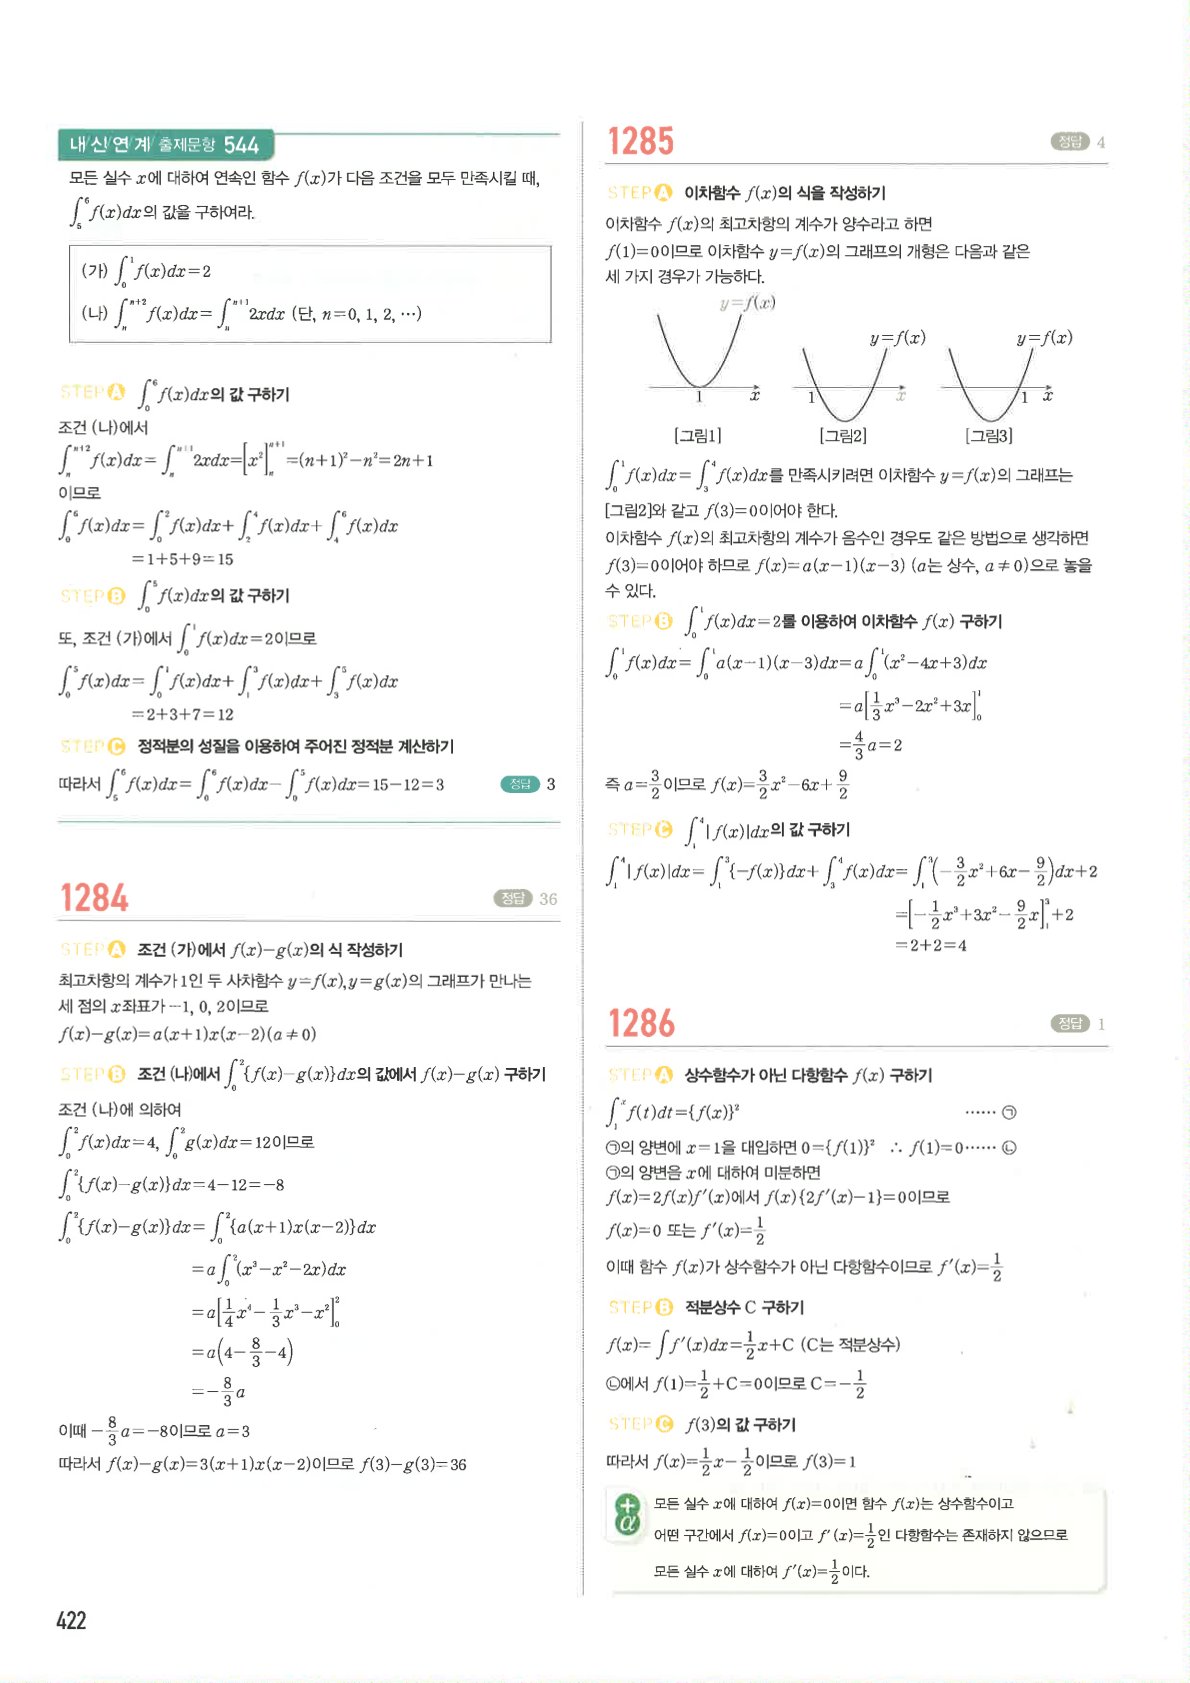 내신연계 출제문항 544
모든 실수 x에 대하여 연속인 함수 f(x)가 다음 조건을 모두 만족시킬 때,
∫₅⁶ f(x)dx의 값을 구하여라.
(가) ∫₀¹ f(x)dx=2
(나) ∫ₙⁿ⁺² f(x)dx= ∫ₙⁿ⁺¹ 2xdx (단, n=0, 1, 2, ⋯)
STEP A ∫₀⁶ f(x)dx의 값 구하기
조건 (나)에서
∫ₙⁿ⁺² f(x)dx= ∫ₙⁿ⁺¹ 2xdx=[x²]ₙⁿ⁺¹ =(n+1)²−n²=2n+1
이므로
∫₀⁶ f(x)dx= ∫₀² f(x)dx+ ∫₂⁴ f(x)dx+ ∫₄⁶ f(x)dx
=1+5+9=15
STEP B ∫₀⁵ f(x)dx의 값 구하기
또, 조건 (가)에서 ∫₀¹ f(x)dx=2이므로
∫₀⁵ f(x)dx= ∫₀¹ f(x)dx+ ∫₁³ f(x)dx+ ∫₃⁵ f(x)dx
=2+3+7=12
STEP C 정적분의 성질을 이용하여 주어진 정적분 계산하기
따라서 ∫₅⁶ f(x)dx= ∫₀⁶ f(x)dx− ∫₀⁵ f(x)dx=15−12=3 정답 3
1284 정답 36
STEP A 조건 (가)에서 f(x)−g(x)의 식 작성하기
최고차항의 계수가 1인 두 사차함수 y=f(x), y=g(x)의 그래프가 만나는
세 점의 x좌표가 −1, 0, 2이므로
f(x)−g(x)=a(x+1)x(x−2)(a≠0)
STEP B 조건 (나)에서 ∫₀² {f(x)−g(x)}dx의 값에서 f(x)−g(x) 구하기
조건 (나)에 의하여
∫₀² f(x)dx=4, ∫₀² g(x)dx=12이므로
∫₀² {f(x)−g(x)}dx=4−12=−8
∫₀² {f(x)−g(x)}dx= ∫₀² {a(x+1)x(x−2)}dx
=a∫₀² (x³−x²−2x)dx
=a[1/4 x⁴− 1/3 x³−x²]₀²
=a(4− 8/3 −4)
=− 8/3 a
이때 − 8/3 a=−8이므로 a=3
따라서 f(x)−g(x)=3(x+1)x(x−2)이므로 f(3)−g(3)=36
422
1285 정답 4
STEP A 이차함수 f(x)의 식을 작성하기
이차함수 f(x)의 최고차항의 계수가 양수라고 하면
f(1)=0이므로 이차함수 y=f(x)의 그래프의 개형은 다음과 같은
세 가지 경우가 가능하다.
y=f(x)
y=f(x) y=f(x)
1 x 1 x 1 x
[그림1] [그림2] [그림3]
∫₀¹ f(x)dx= ∫₃⁴ f(x)dx를 만족시키려면 이차함수 y=f(x)의 그래프는
[그림2]와 같고 f(3)=0이어야 한다.
이차함수 f(x)의 최고차항의 계수가 음수인 경우도 같은 방법으로 생각하면
f(3)=0이어야 하므로 f(x)=a(x−1)(x−3) (a는 상수, a≠0)으로 놓을
수 있다.
STEP B ∫₀¹ f(x)dx=2를 이용하여 이차함수 f(x) 구하기
∫₀¹ f(x)dx= ∫₀¹ a(x−1)(x−3)dx=a∫₀¹ (x²−4x+3)dx
=a[1/3 x³−2x²+3x]₀¹
= 4/3 a=2
즉 a= 3/2 이므로 f(x)= 3/2 x²−6x+ 9/2
STEP C ∫₁⁴ |f(x)|dx의 값 구하기
∫₁⁴ |f(x)|dx= ∫₁³ {−f(x)}dx+ ∫₃⁴ f(x)dx= ∫₁³ (− 3/2 x²+6x− 9/2)dx+2
=[− 1/2 x³+3x²− 9/2 x]₁³ +2
=2+2=4
1286 정답 1
STEP A 상수함수가 아닌 다항함수 f(x) 구하기
∫₁ˣ f(t)dt={f(x)}² ⋯⋯ ㉠
㉠의 양변에 x=1을 대입하면 0={f(1)}² ∴ f(1)=0⋯⋯ ㉡
㉠의 양변을 x에 대하여 미분하면
f(x)=2f(x)f′(x)에서 f(x){2f′(x)−1}=0이므로
f(x)=0 또는 f′(x)= 1/2
이때 함수 f(x)가 상수함수가 아닌 다항함수이므로 f′(x)= 1/2
STEP B 적분상수 C 구하기
f(x)= ∫f′(x)dx= 1/2 x+C (C는 적분상수)
㉡에서 f(1)= 1/2 +C=0이므로 C=− 1/2
STEP C f(3)의 값 구하기
따라서 f(x)= 1/2 x− 1/2 이므로 f(3)=1
+α 모든 실수 x에 대하여 f(x)=0이면 함수 f(x)는 상수함수이고
어떤 구간에서 f(x)=0이고 f′(x)= 1/2 인 다항함수는 존재하지 않으므로
모든 실수 x에 대하여 f′(x)= 1/2 이다.